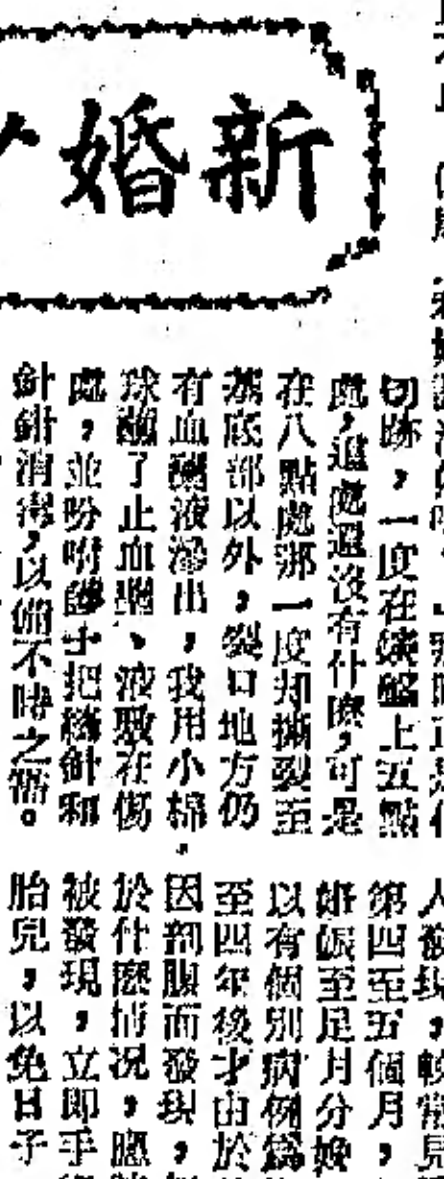 新婚
切跡，一度在鐘盤上五點
處，這處還沒有什麽，可是
在八點處那一度却撕裂至
基底部以外，裂口地方仍
有血液滲出，我用小棉
球醮了止血、液敷在傷
處，並吩咐護士把縫針和
針鉗消毒，以備不時之需。
人發現，較常見
第四至五個月，
娠至足月分娩
以有個別病例爲
至四年後才由於
因剖腹而發現，
於什麽情况，應
被發現，立即手
胎兒，以免日子